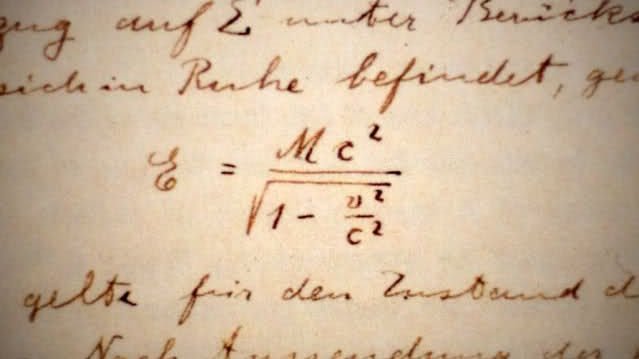 zug auf Σ unter Berück
sich in Ruhe befindet, ge
E = Mc² / √(1 - v²/c²)
gelte für den Zustand d
Nach Aussendung der